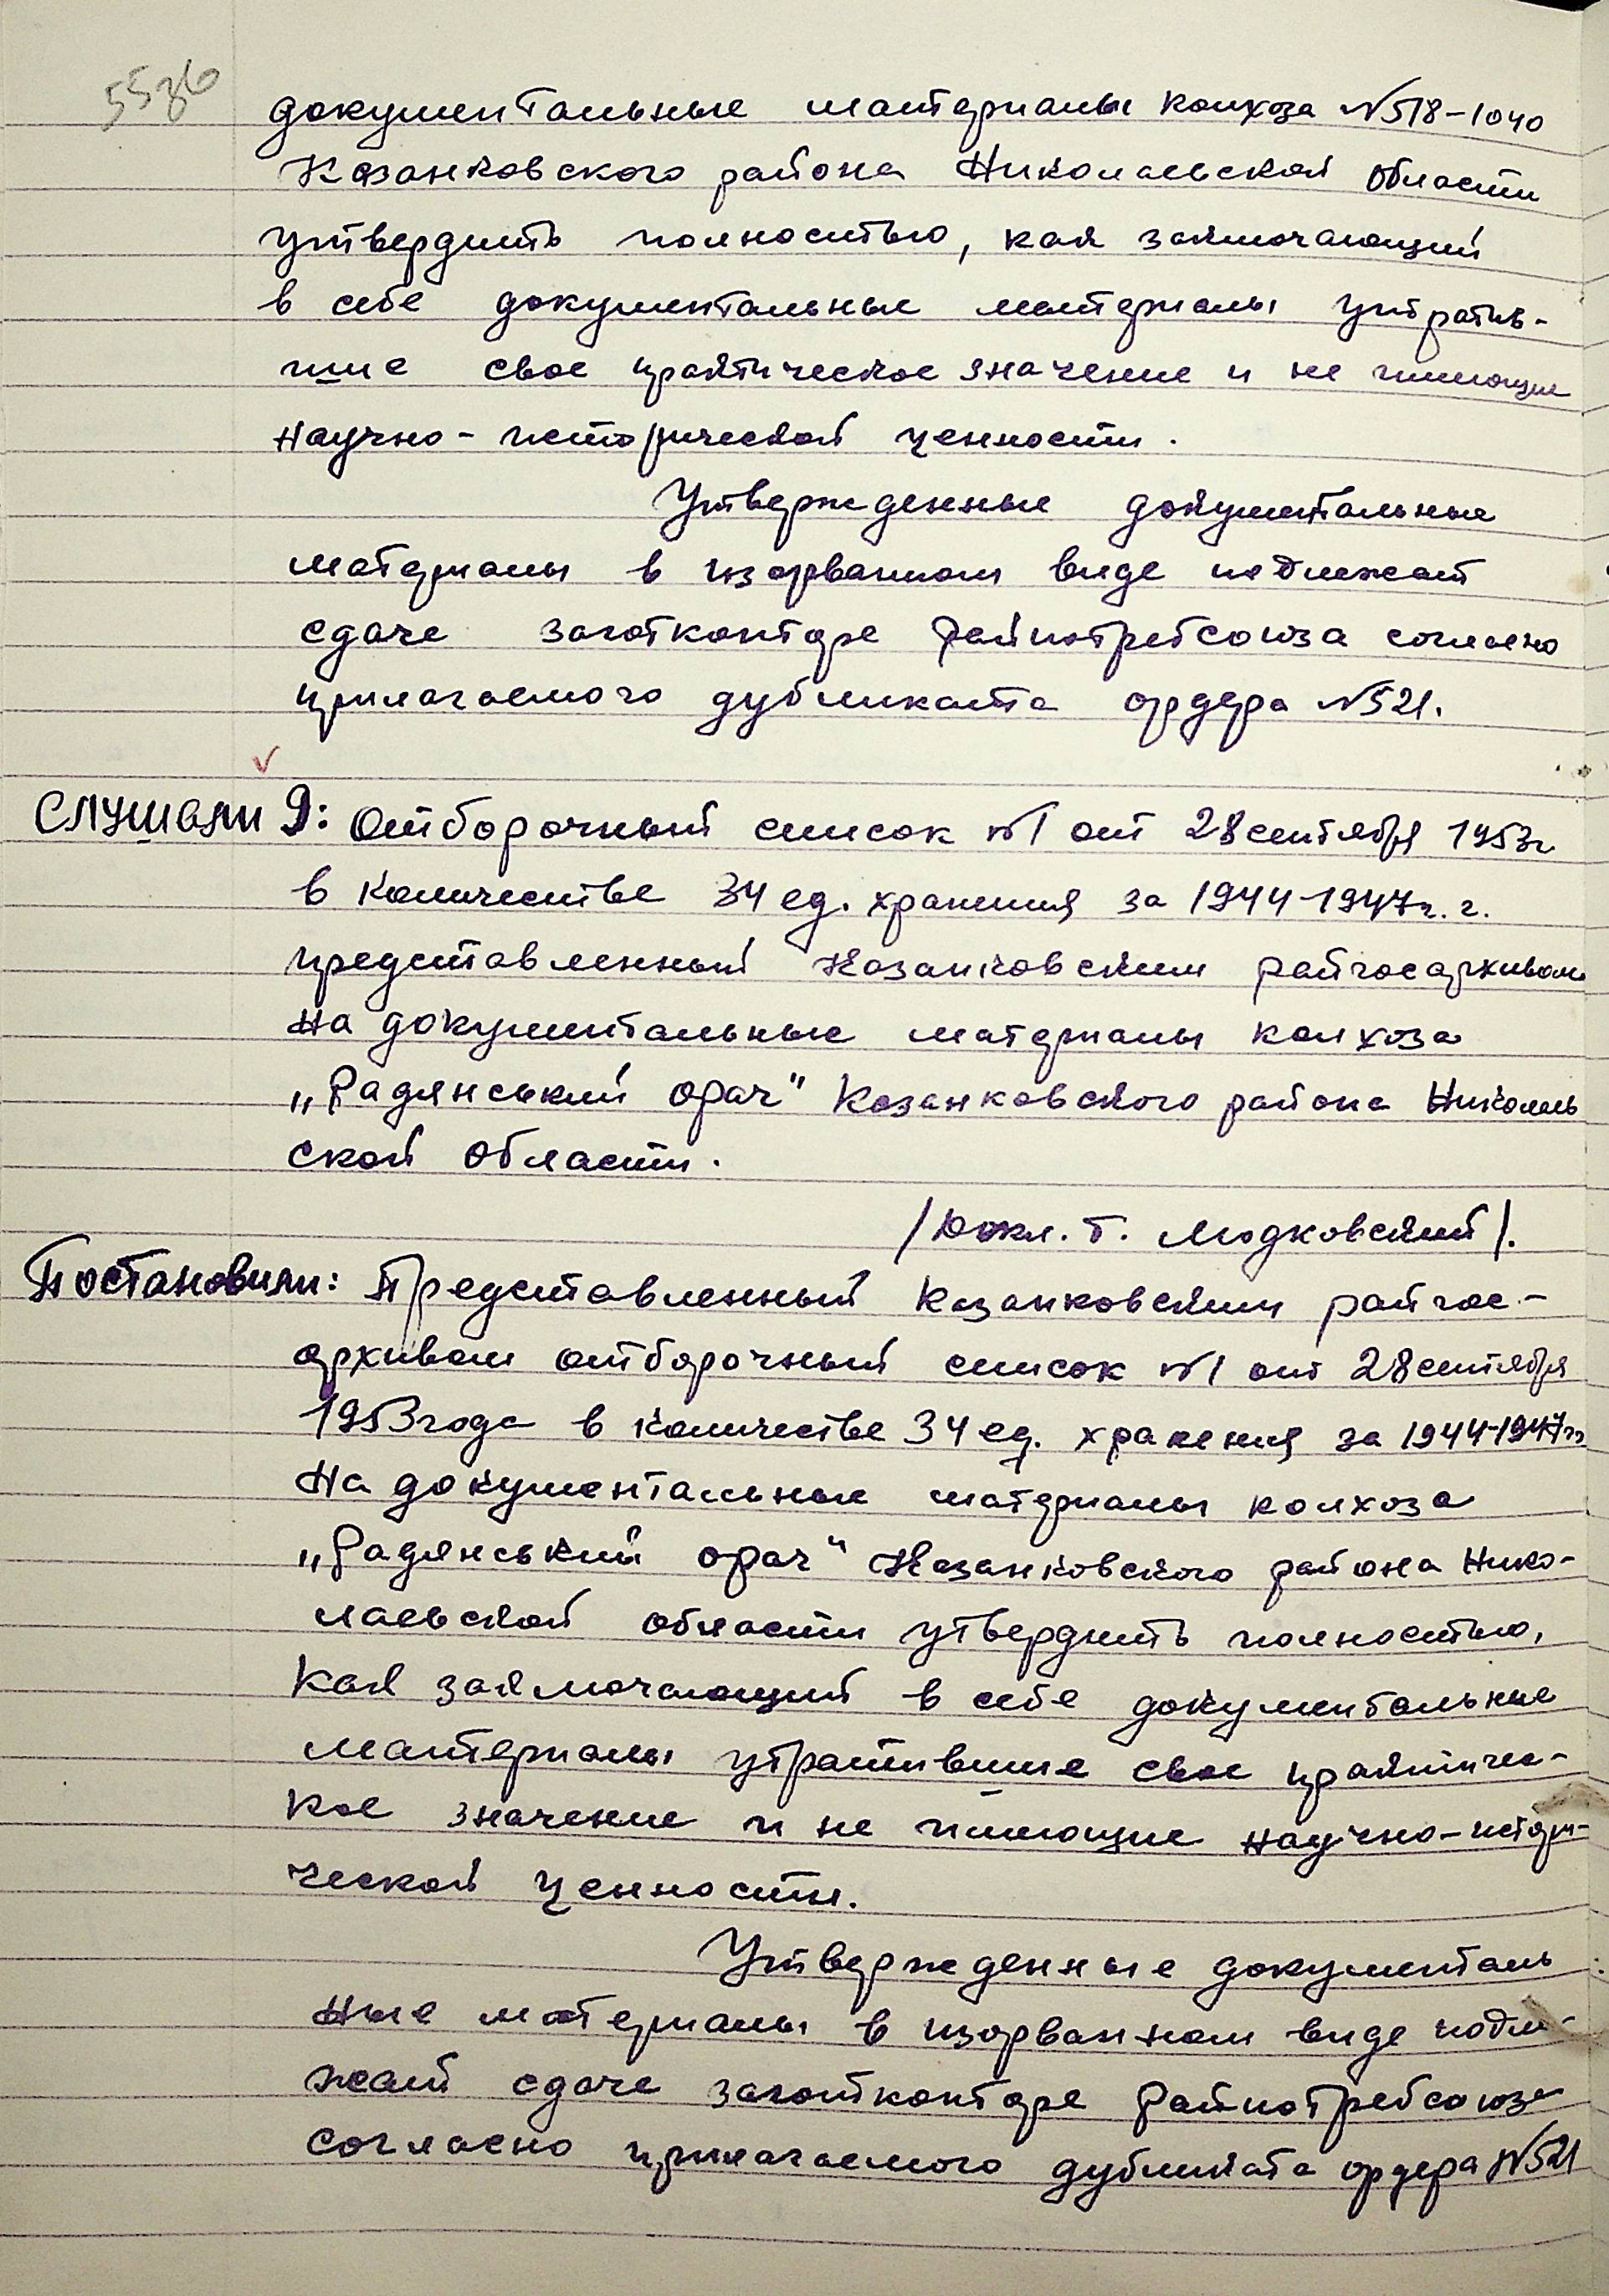 55зв
документальные материалы колхоза №518-1040
Казанковского района Николаевской области
утвердить полностью, как заключающий
в себе документальные материалы утратив-
шие свое практическое значение и не имеющие
научно-исторической ценности.
Утвержденные документальные
материалы в изорванном виде подлежат
сдаче заготконторе Райпотребсоюза согласно
прилагаемого дубликата ордера №521.
Слушали 9: Отборочный список №1 от 28 сентября 1953г
в количестве 34 ед. хранения за 1944-1947г.г.
представленный Казанковским райгосархивом
на документальные материалы колхоза
„Радянський орач" Казанковского района Николаев
ской области.
/Докл. т. Модковский/.
Постановили: Представленный Казанковским райгос-
архивом отборочный список №1 от 28 сентября
1953 года в количестве 34 ед. хранения за 1944-1947гг
на документальные материалы колхоза
„Радянський орач" Казанковского района Нико-
лаевской области утвердить полностью,
как заключающий в себе документальные
материалы утратившие свое практичес-
кое значение и не имеющие научно-истори-
ческой ценности.
Утвержденные документаль
ные материалы в изорванном виде подле-
жат сдаче заготконторе Райпотребсоюза
согласно прилагаемого дубликата ордера №521